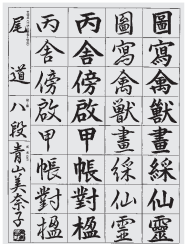 圖寫禽獸畫綵仙靈
圖寫禽獸畫綵仙靈
丙舍傍啟甲帳對楹
丙舍傍啟甲帳對楹
尾道八段青山美奈子